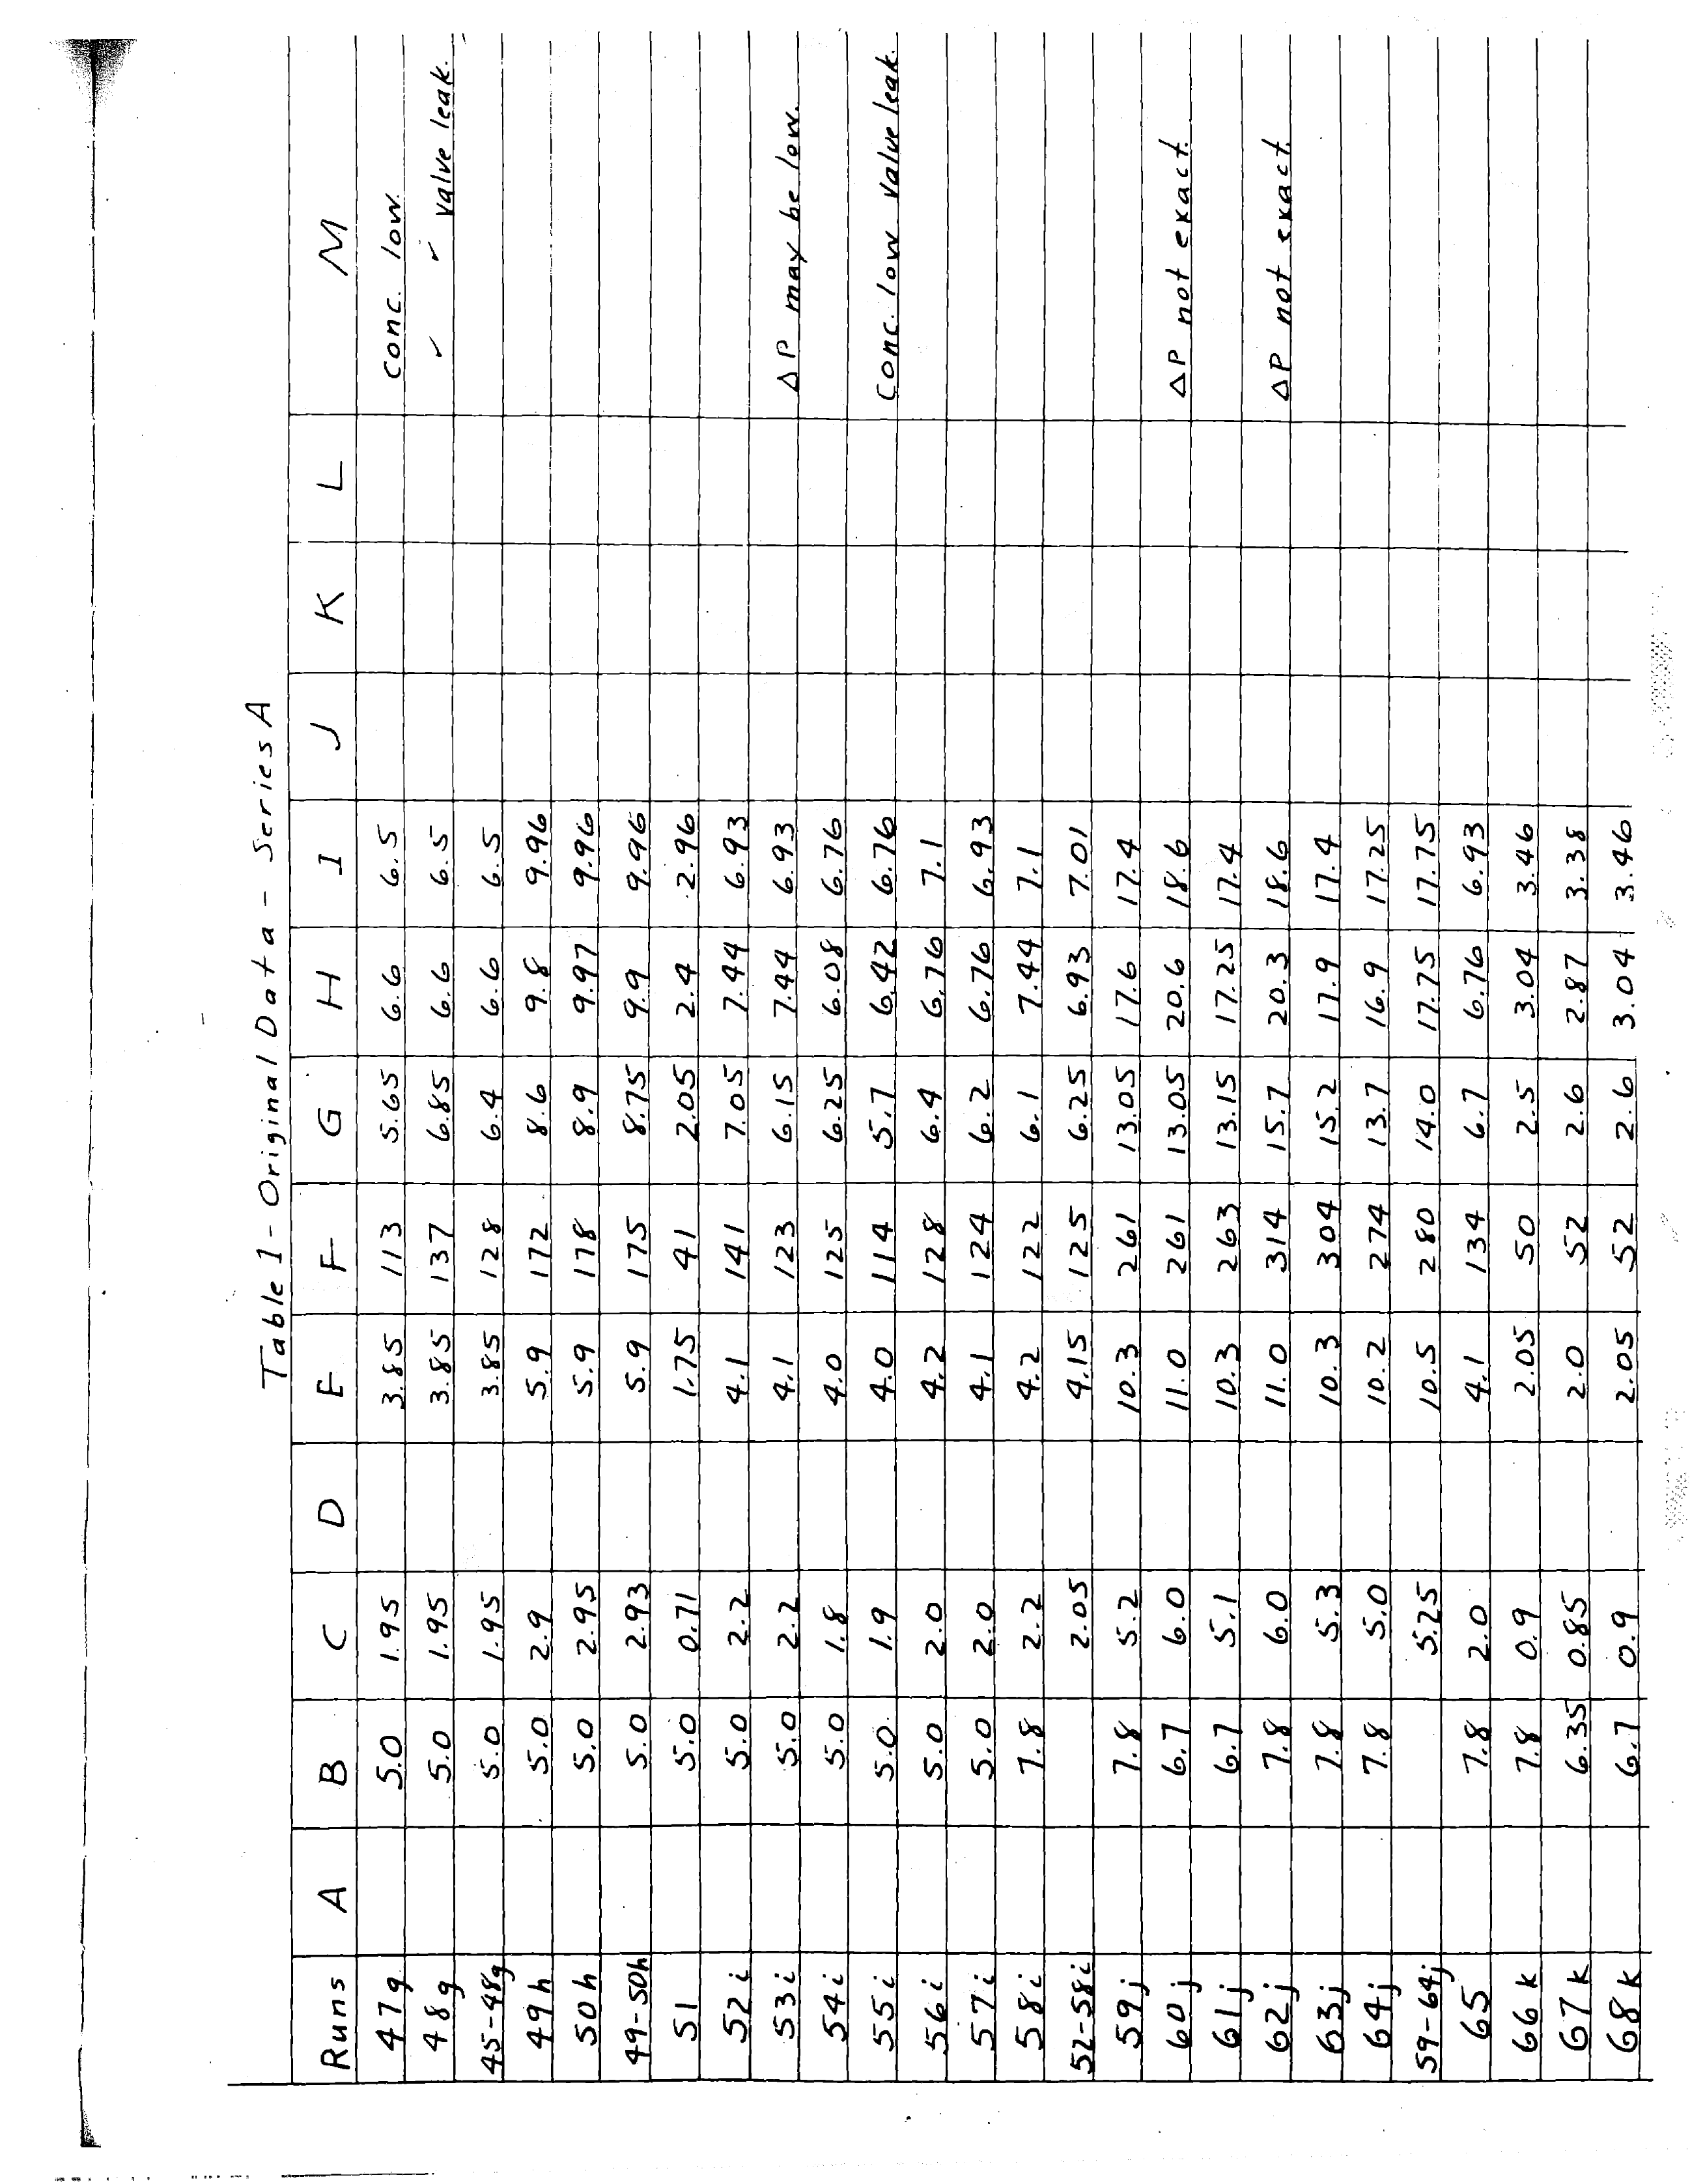 Table I - Original Data - Series A
Runs A B C D E F G H I J K L M
47g 5.0 1.95 3.85 113 5.65 6.6 6.5 Conc. low.
48g 5.0 1.95 3.85 137 6.85 6.6 6.5 ✓ ✓ valve leak.
45-48g 5.0 1.95 3.85 128 6.4 6.6 6.5
49h 5.0 2.9 5.9 172 8.6 9.8 9.96
50h 5.0 2.95 5.9 178 8.9 9.97 9.96
49-50h 5.0 2.93 5.9 175 8.75 9.9 9.96
51 5.0 0.71 1.75 41 2.05 2.4 2.96
52i 5.0 2.2 4.1 141 7.05 7.44 6.93
53i 5.0 2.2 4.1 123 6.15 7.44 6.93 ΔP may be low.
54i 5.0 1.8 4.0 125 6.25 6.08 6.76
55i 5.0 1.9 4.0 114 5.7 6.42 6.76 Conc. low valve leak.
56i 5.0 2.0 4.2 128 6.4 6.76 7.1
57i 5.0 2.0 4.1 124 6.2 6.76 6.93
58i 7.8 2.2 4.2 122 6.1 7.44 7.1
52-58i 2.05 4.15 125 6.25 6.93 7.01
59j 7.8 5.2 10.3 261 13.05 17.6 17.4
60j 6.7 6.0 11.0 261 13.05 20.6 18.6 ΔP not exact.
61j 6.7 5.1 10.3 263 13.15 17.25 17.4
62j 7.8 6.0 11.0 314 15.7 20.3 18.6 ΔP not exact.
63j 7.8 5.3 10.3 304 15.2 17.9 17.4
64j 7.8 5.0 10.2 274 13.7 16.9 17.25
59-64j 5.25 10.5 280 14.0 17.75 17.75
65 7.8 2.0 4.1 134 6.7 6.76 6.93
66k 7.8 0.9 2.05 50 2.5 3.04 3.46
67k 6.35 0.85 2.0 52 2.6 2.87 3.38
68k 6.7 0.9 2.05 52 2.6 3.04 3.46